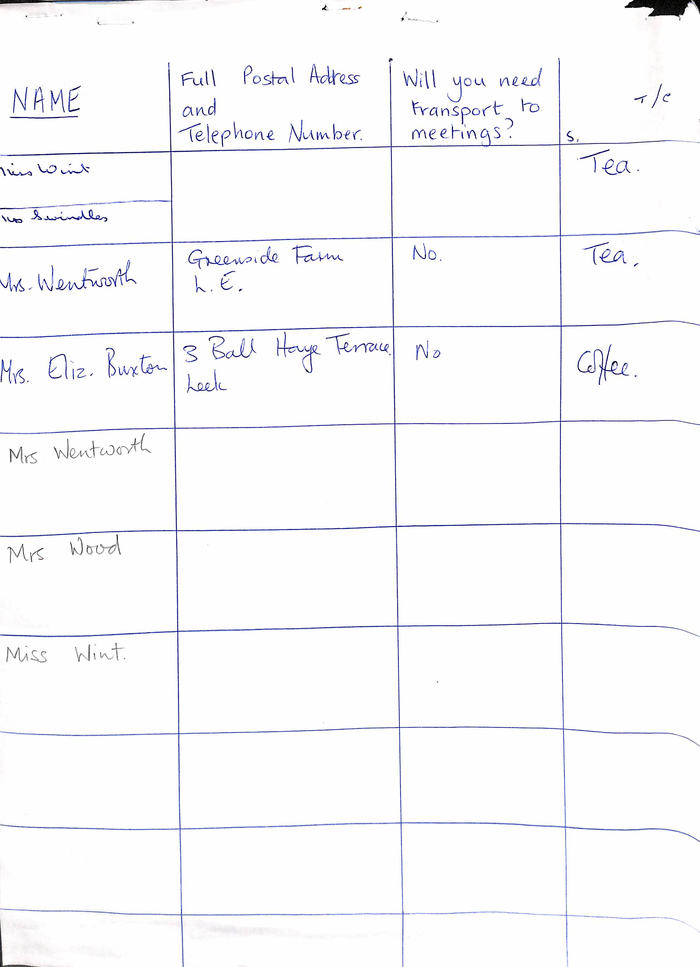 NAME
Full Postal Adress
and
Telephone Number.
Will you need
transport to
meetings?
T/C
S.
Miss Wint
Tea.
Mrs Swindles
Mrs. Wentworth
Greenside Farm
L. E.
No.
Tea.
Mrs. Eliz. Buxton
3 Ball Haye Terrace
Leek
No
Coffee.
Mrs Wentworth
Mrs Wood
Miss Wint.